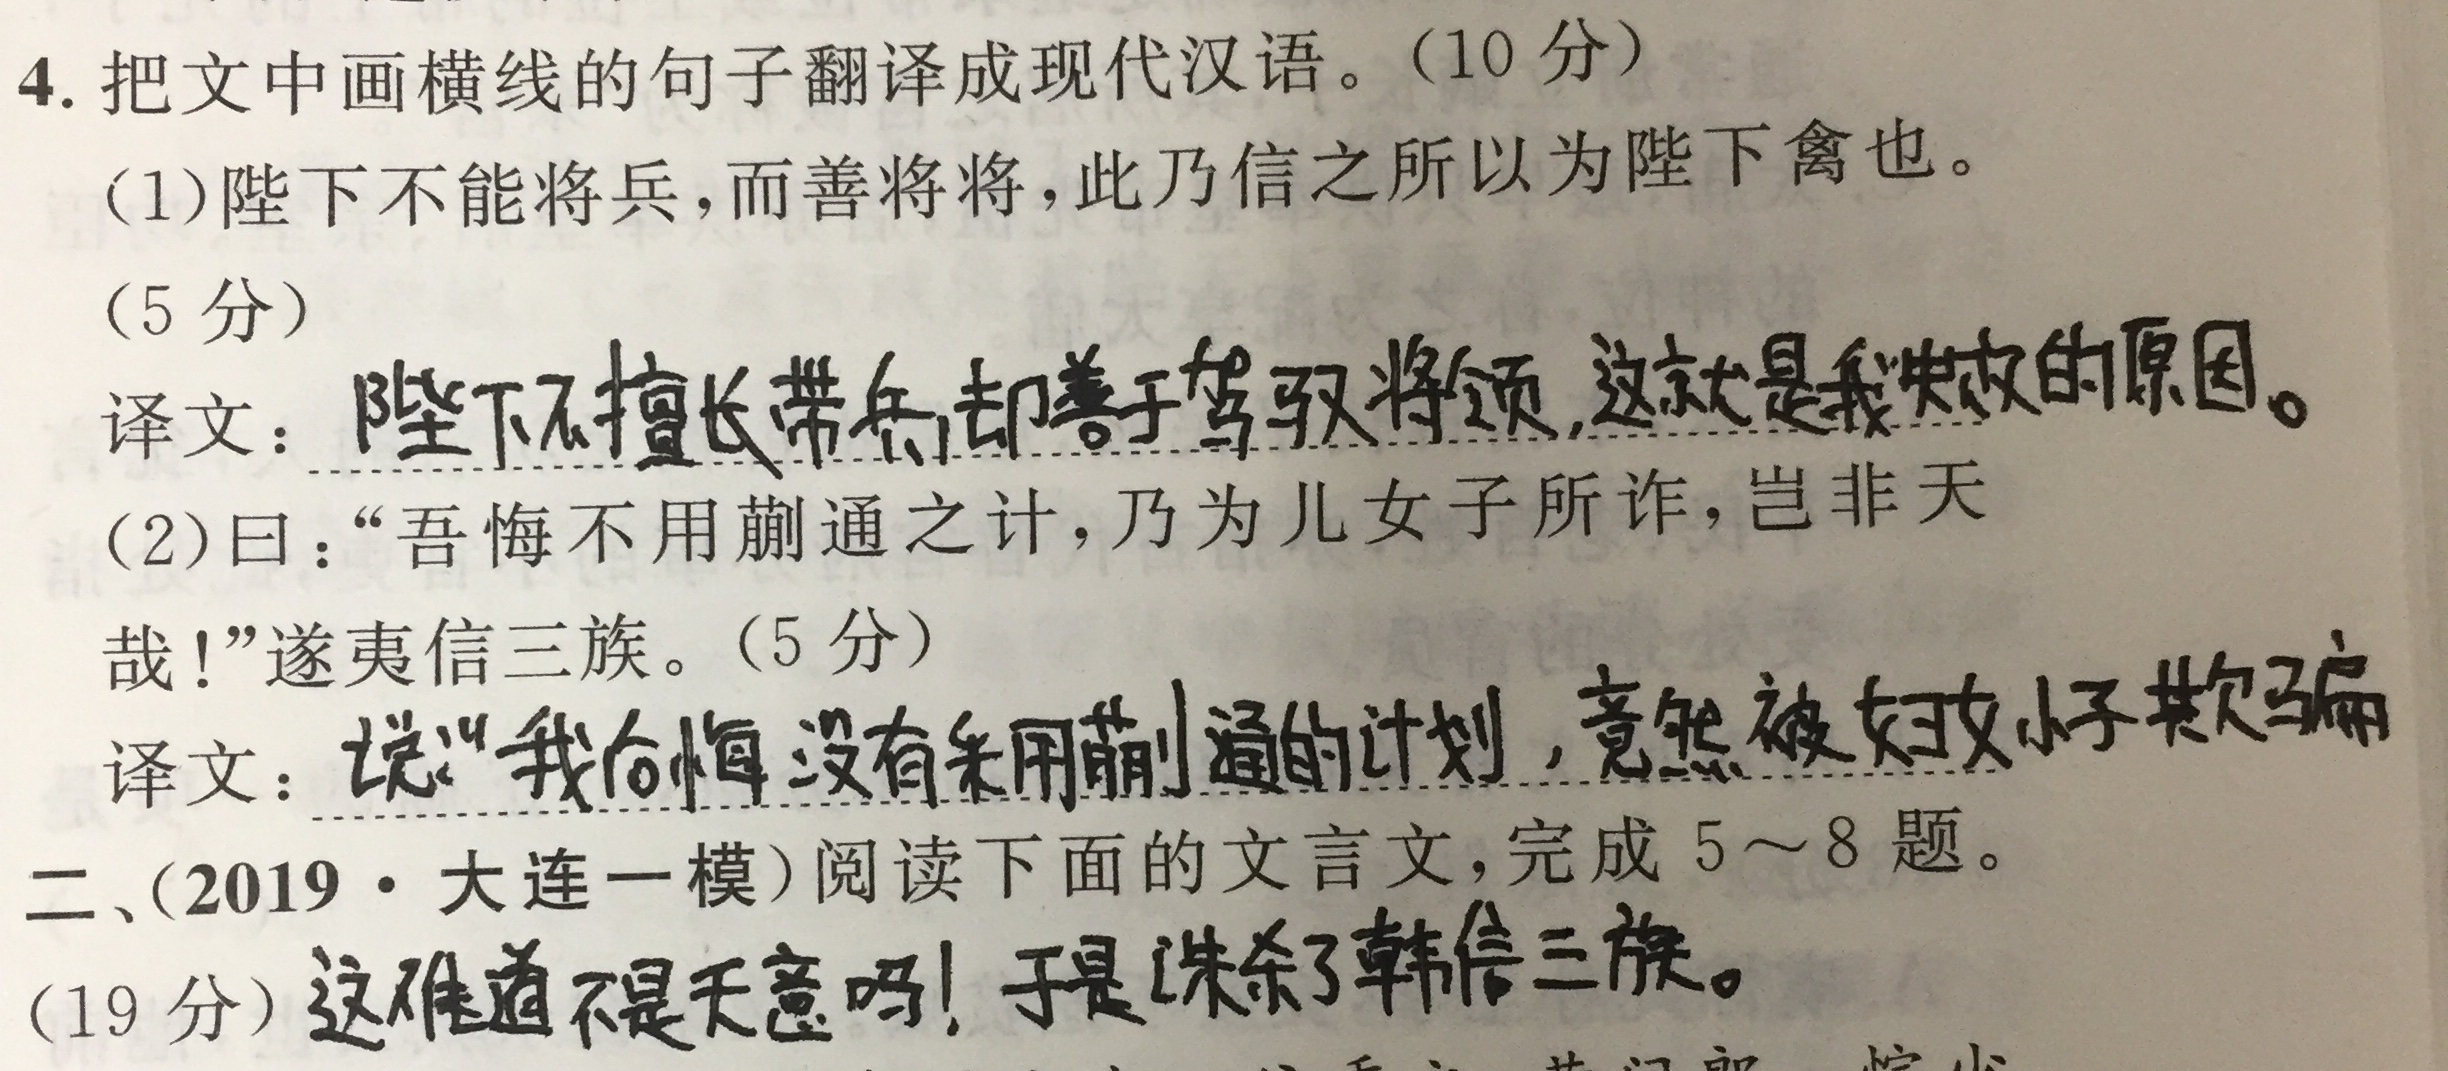 4. 把文中画横线的句子翻译成现代汉语。(10 分)
(1)陛下不能将兵,而善将将,此乃信之所以为陛下禽也。
(5 分)
译文: 陛下不擅长带兵,却善于驾驭将领,这就是我失败的原因。
(2)曰:“吾悔不用蒯通之计,乃为儿女子所诈,岂非天
哉!”遂夷信三族。(5 分)
译文: 说:“我后悔没有采用蒯通的计划,竟然被妇女小子欺骗
二、(2019·大连一模)阅读下面的文言文,完成 5～8 题。
(19 分) 这难道不是天意吗!于是诛杀了韩信三族。